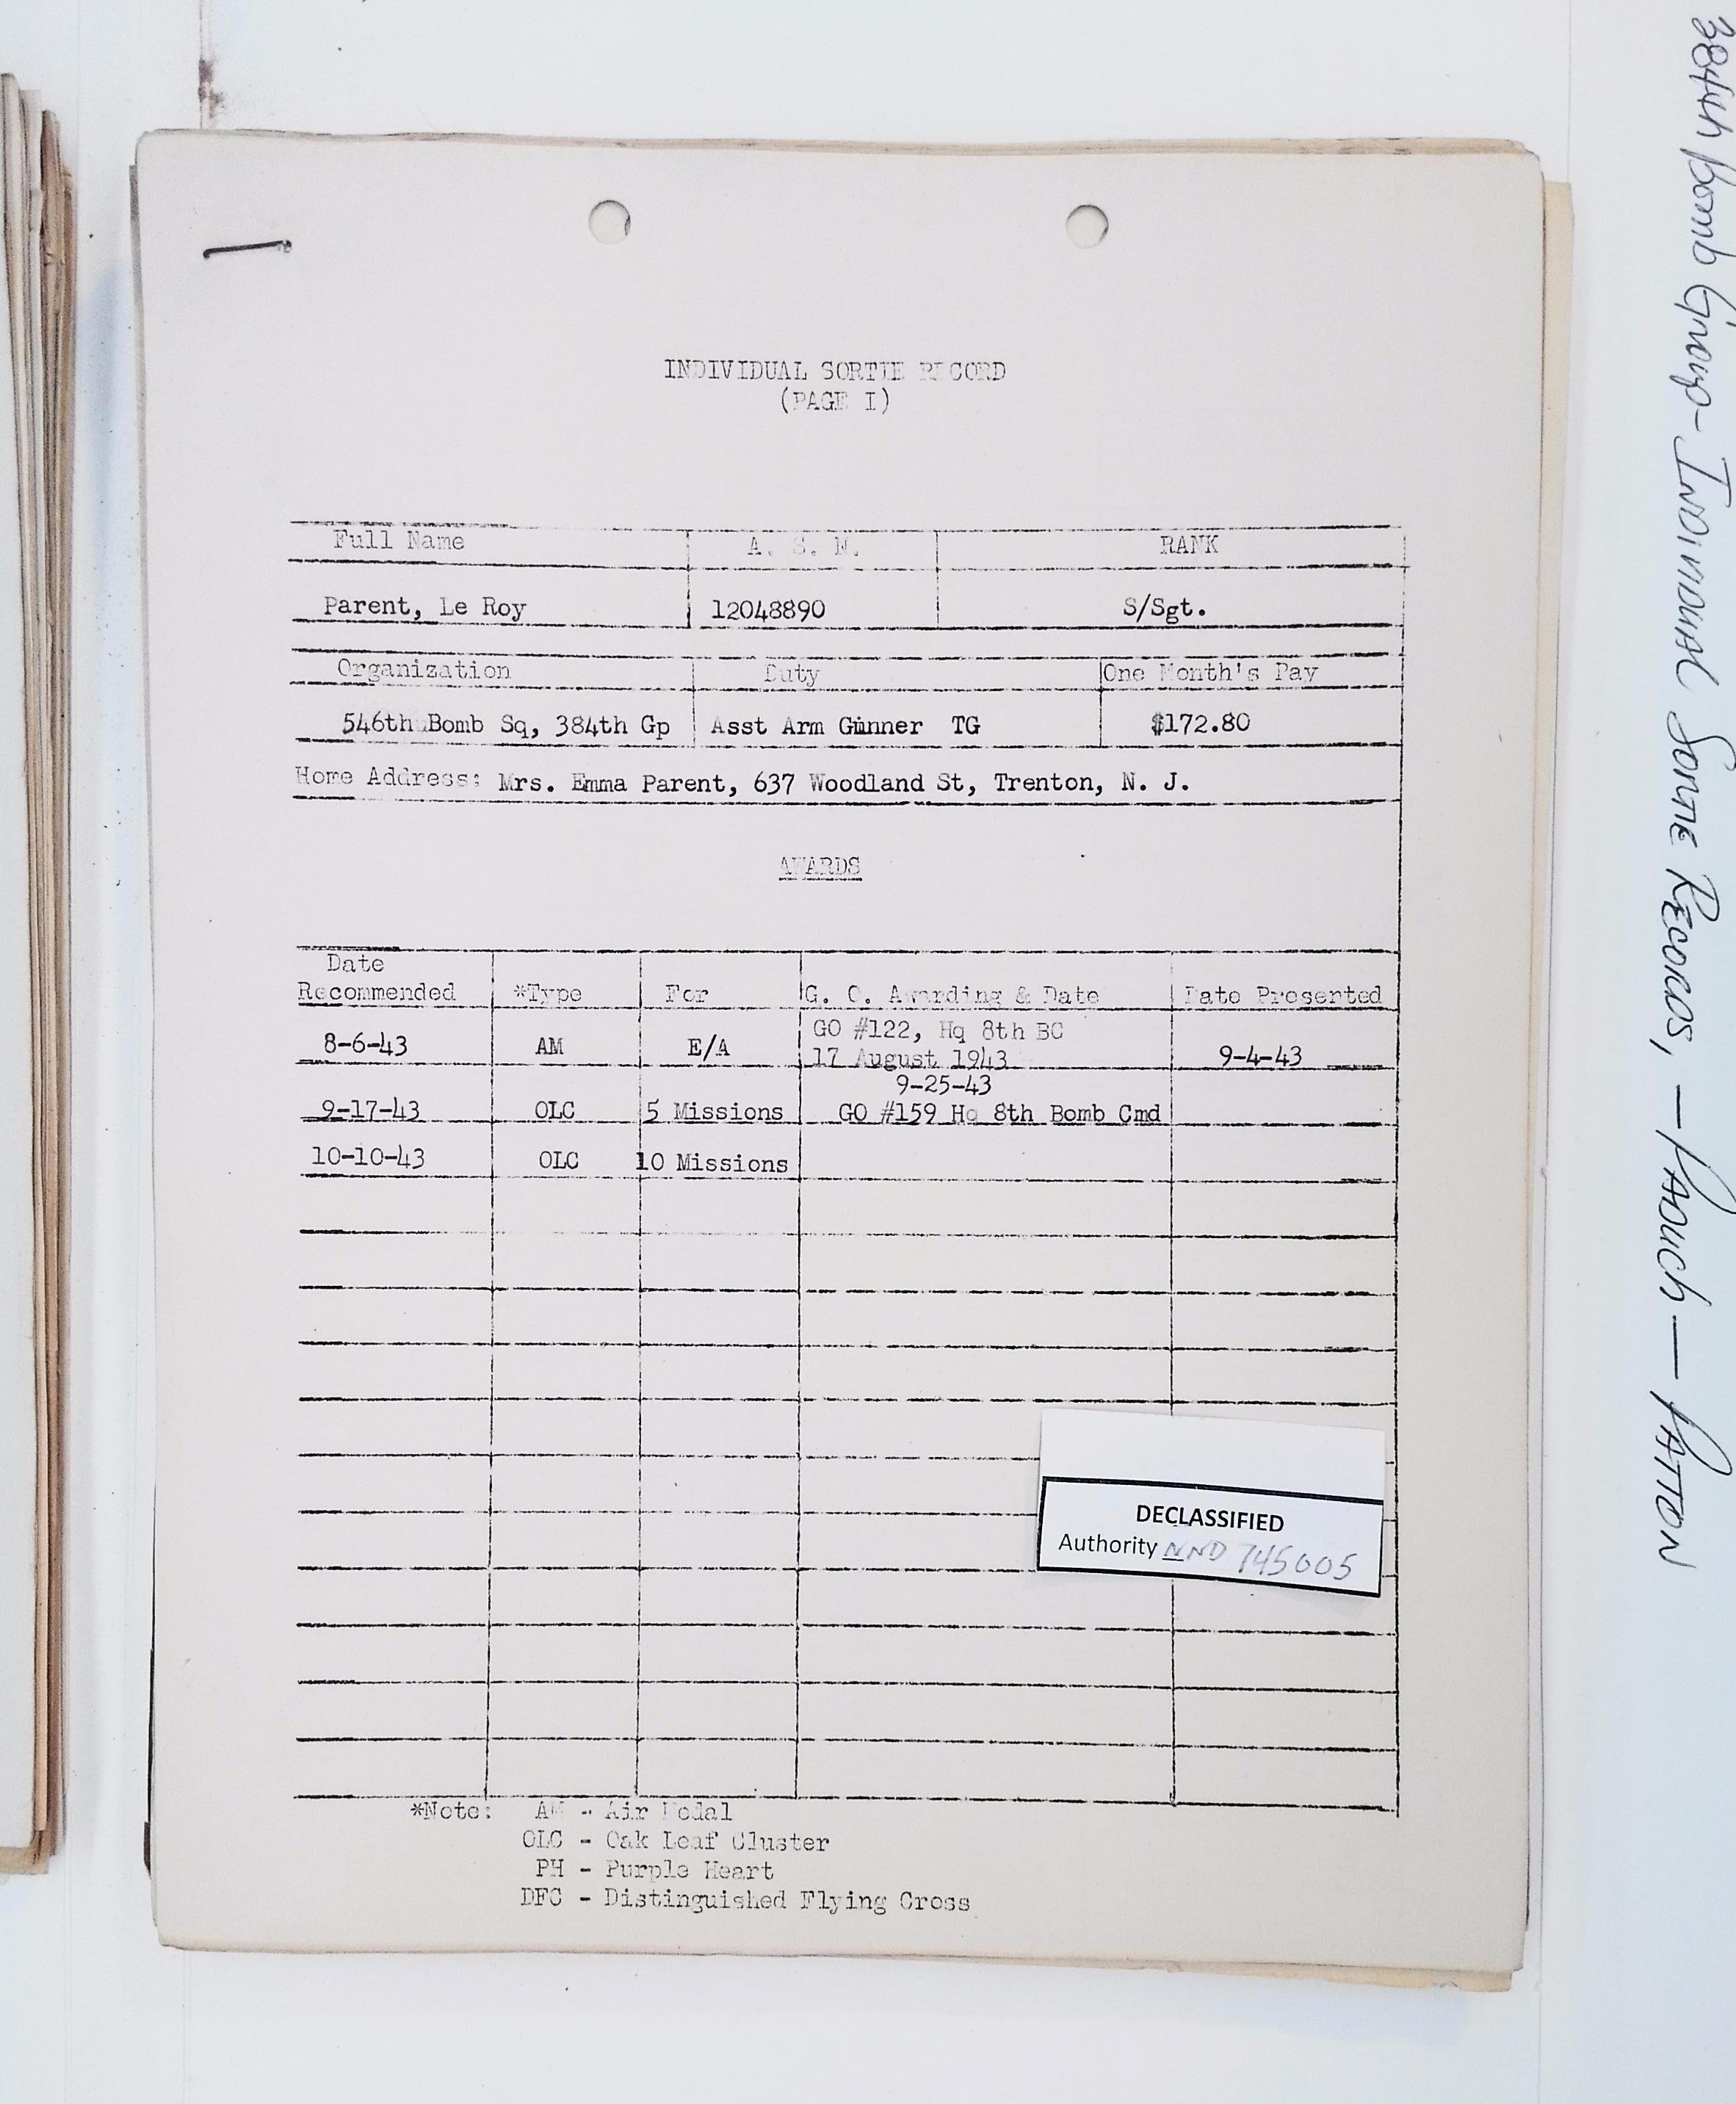 INDIVIDUAL SORTIE RECORD
(PAGE I)
Full Name A. S. N. RANK
Parent, Le Roy 12048890 S/Sgt.
Organization Duty One Month's Pay
546th Bomb Sq, 384th Gp Asst Arm Gunner TG $172.80
Home Address: Mrs. Emma Parent, 637 Woodland St, Trenton, N. J.
AWARDS
Date
Recommended *Type For G. O. Awarding & Date Date Presented
GO #122, Hq 8th BC
8-6-43 AM E/A 17 August 1943 9-4-43
9-25-43
9-17-43 OLC 5 Missions GO #159 Hq 8th Bomb Cmd
10-10-43 OLC 10 Missions
DECLASSIFIED
Authority NND 745005
*Note: AM - Air Medal
OLC - Oak Leaf Cluster
PH - Purple Heart
DFC - Distinguished Flying Cross
384th Bomb Group - INDIVIDUAL SORTIE RECORDS, - PADUCH - PATTON